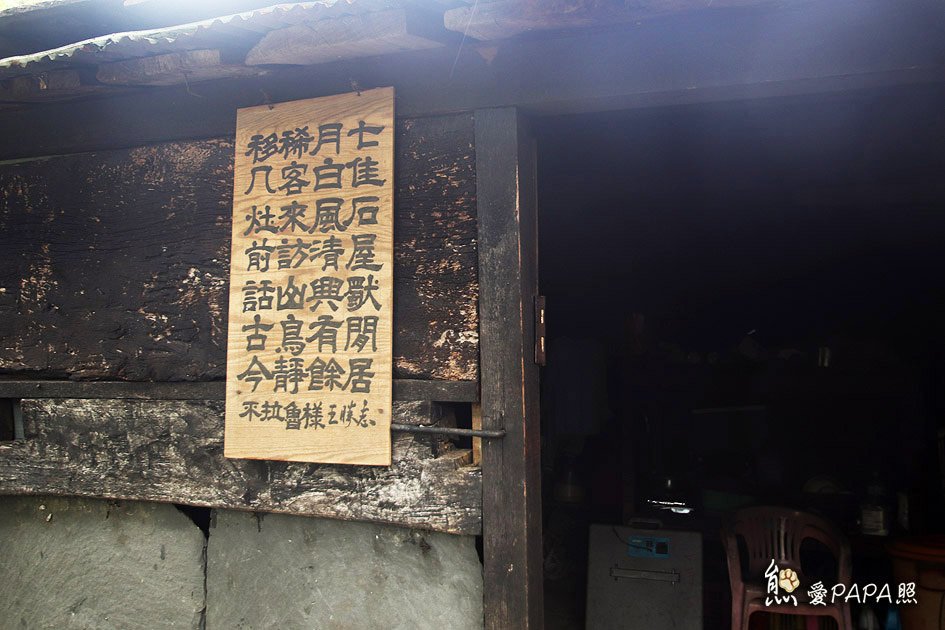 七佳石屋獸閒居
月白風清興有餘
稀客來訪山鳥靜
移几灶前話古今
不拉魯樣 王
熊愛PAPA照